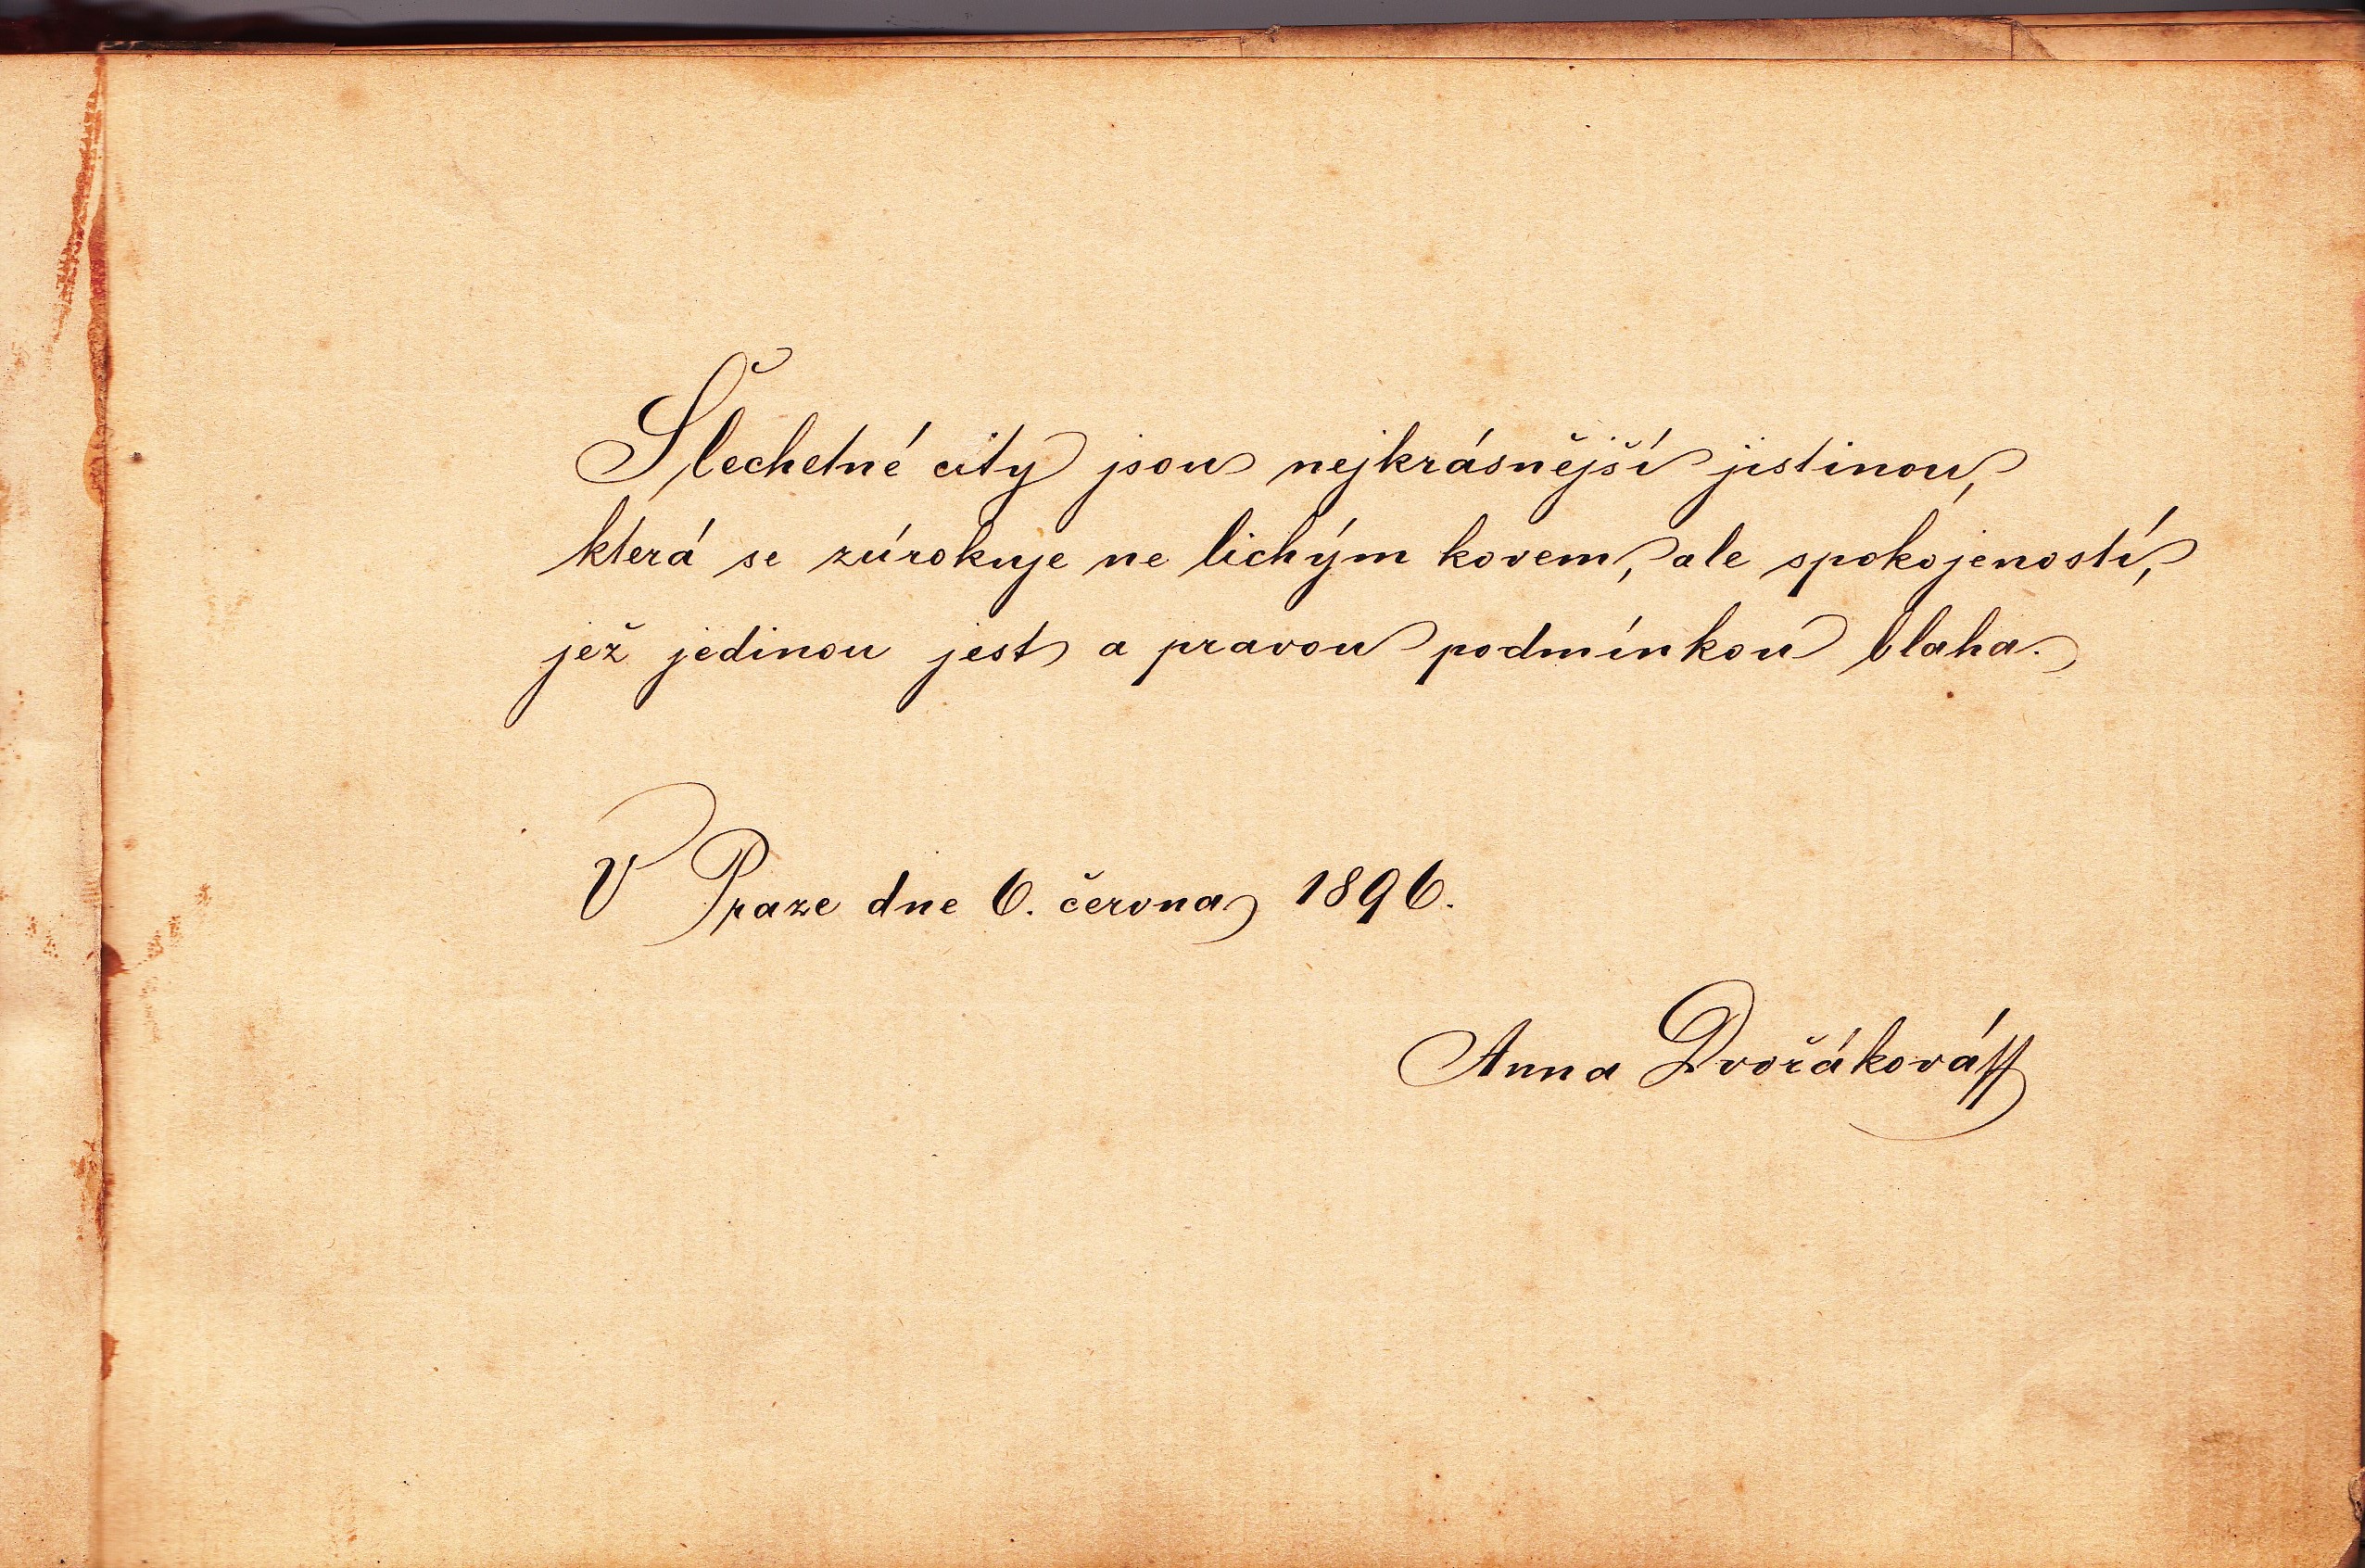 Šlechetné city jsou nejkrásnější jistinou,
která se zúrokuje ne lichým kovem, ale spokojeností,
jež jedinou jest a pravou podmínkou blaha.
V Praze dne 6. června 1896.
Anna Dvořáková